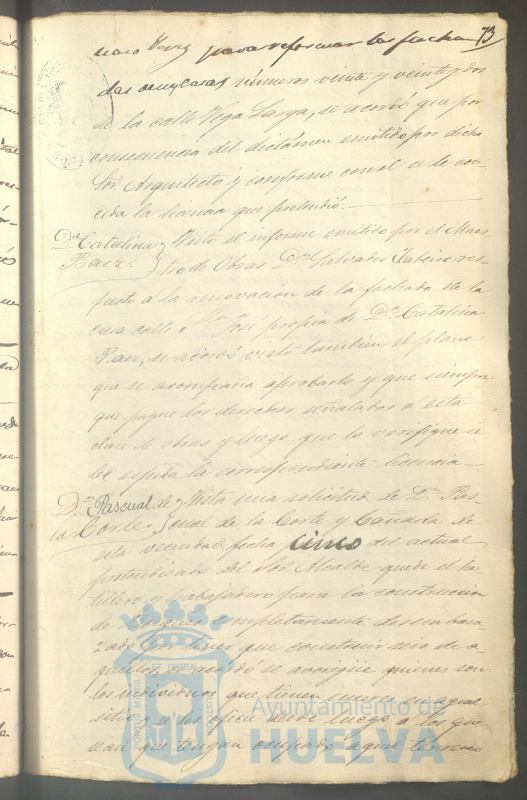 73
para reformar las facha
das de sus casas números veinte y veinte y dos
de la calle Vega Larga, se acordó que por
consecuencia del dictámen emitido por dicho
Sor. Arquitecto y conforme con él se le con-
ceda la licencia que pretendió.—
Da. Catalina
Baez.
Visto el informe emitido por el Maes-
tro de Obras Dn. Salvador res-
pecto á la renovacion de la fachada de la
casa calle Sn. José propia de Da. Catalina
Baez, se acordó visto tambien el plano
que se acompaña aprobarlo y que siempre
que pague los derechos señalados á esta
clase de obras y luego que lo verifique se
le espida la correspondiente licencia—
Dn. Pascual de
la Corte.
Vista una solicitud de Dn. Pas-
cual de la Corte y Cañada de
esta vecindad fecha cinco del actual
pretendiendo del Sor. Alcalde quede el As-
tillero y trabajadero para la construccion
de buques completamente desembara-
zado por tener que construir seis de a-
quellos, se acordó se averigüe quienes son
los individuos que tienen en aquel
sitio y se les oficie desde luego a los que
sean que tengan ocupado aquel terreno
PORTUS MARIS ET TERRAE CUSTODIA
Ayuntamiento de
HUELVA